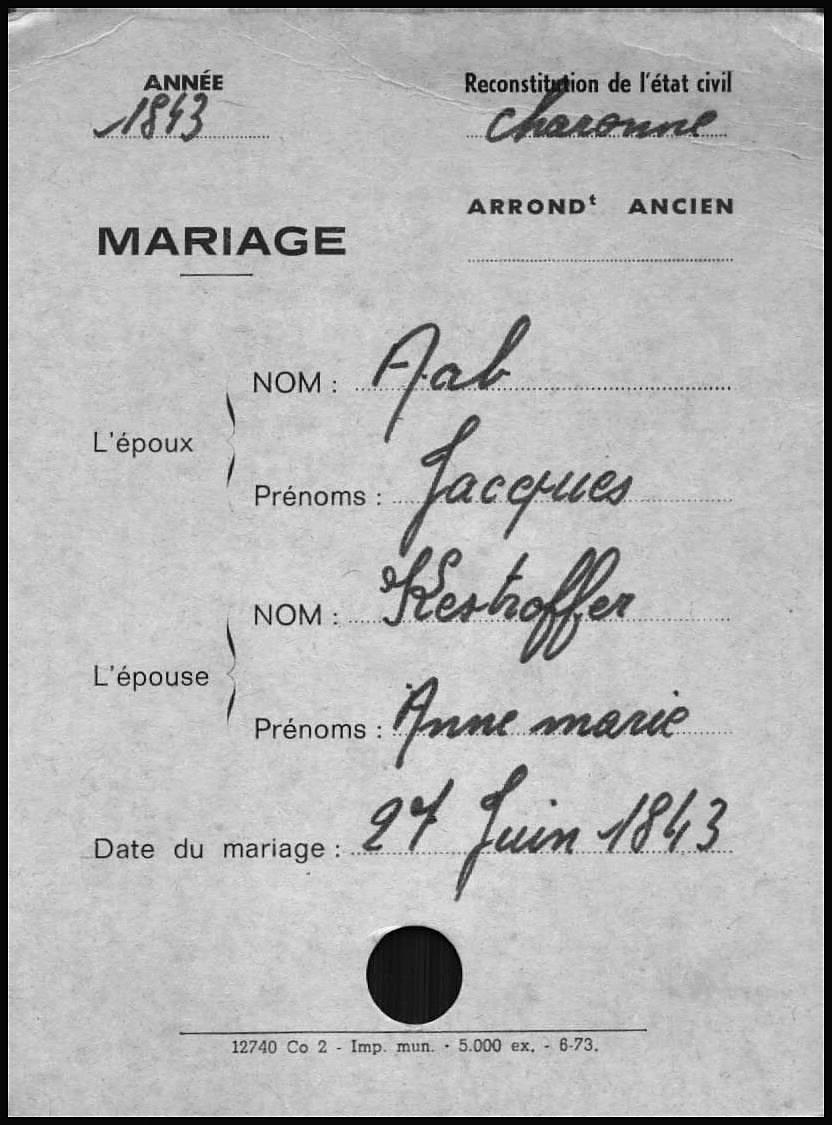 ANNÉE
1843
Reconstitution de l'état civil
Charonne
ARRONDt ANCIEN
MARIAGE
L'époux
NOM : Aab
Prénoms : Jacques
L'épouse
NOM : Kestroffer
Prénoms : Anne marie
Date du mariage : 27 Juin 1843
12740 Co 2 - Imp. mun. - 5.000 ex. - 6-73.